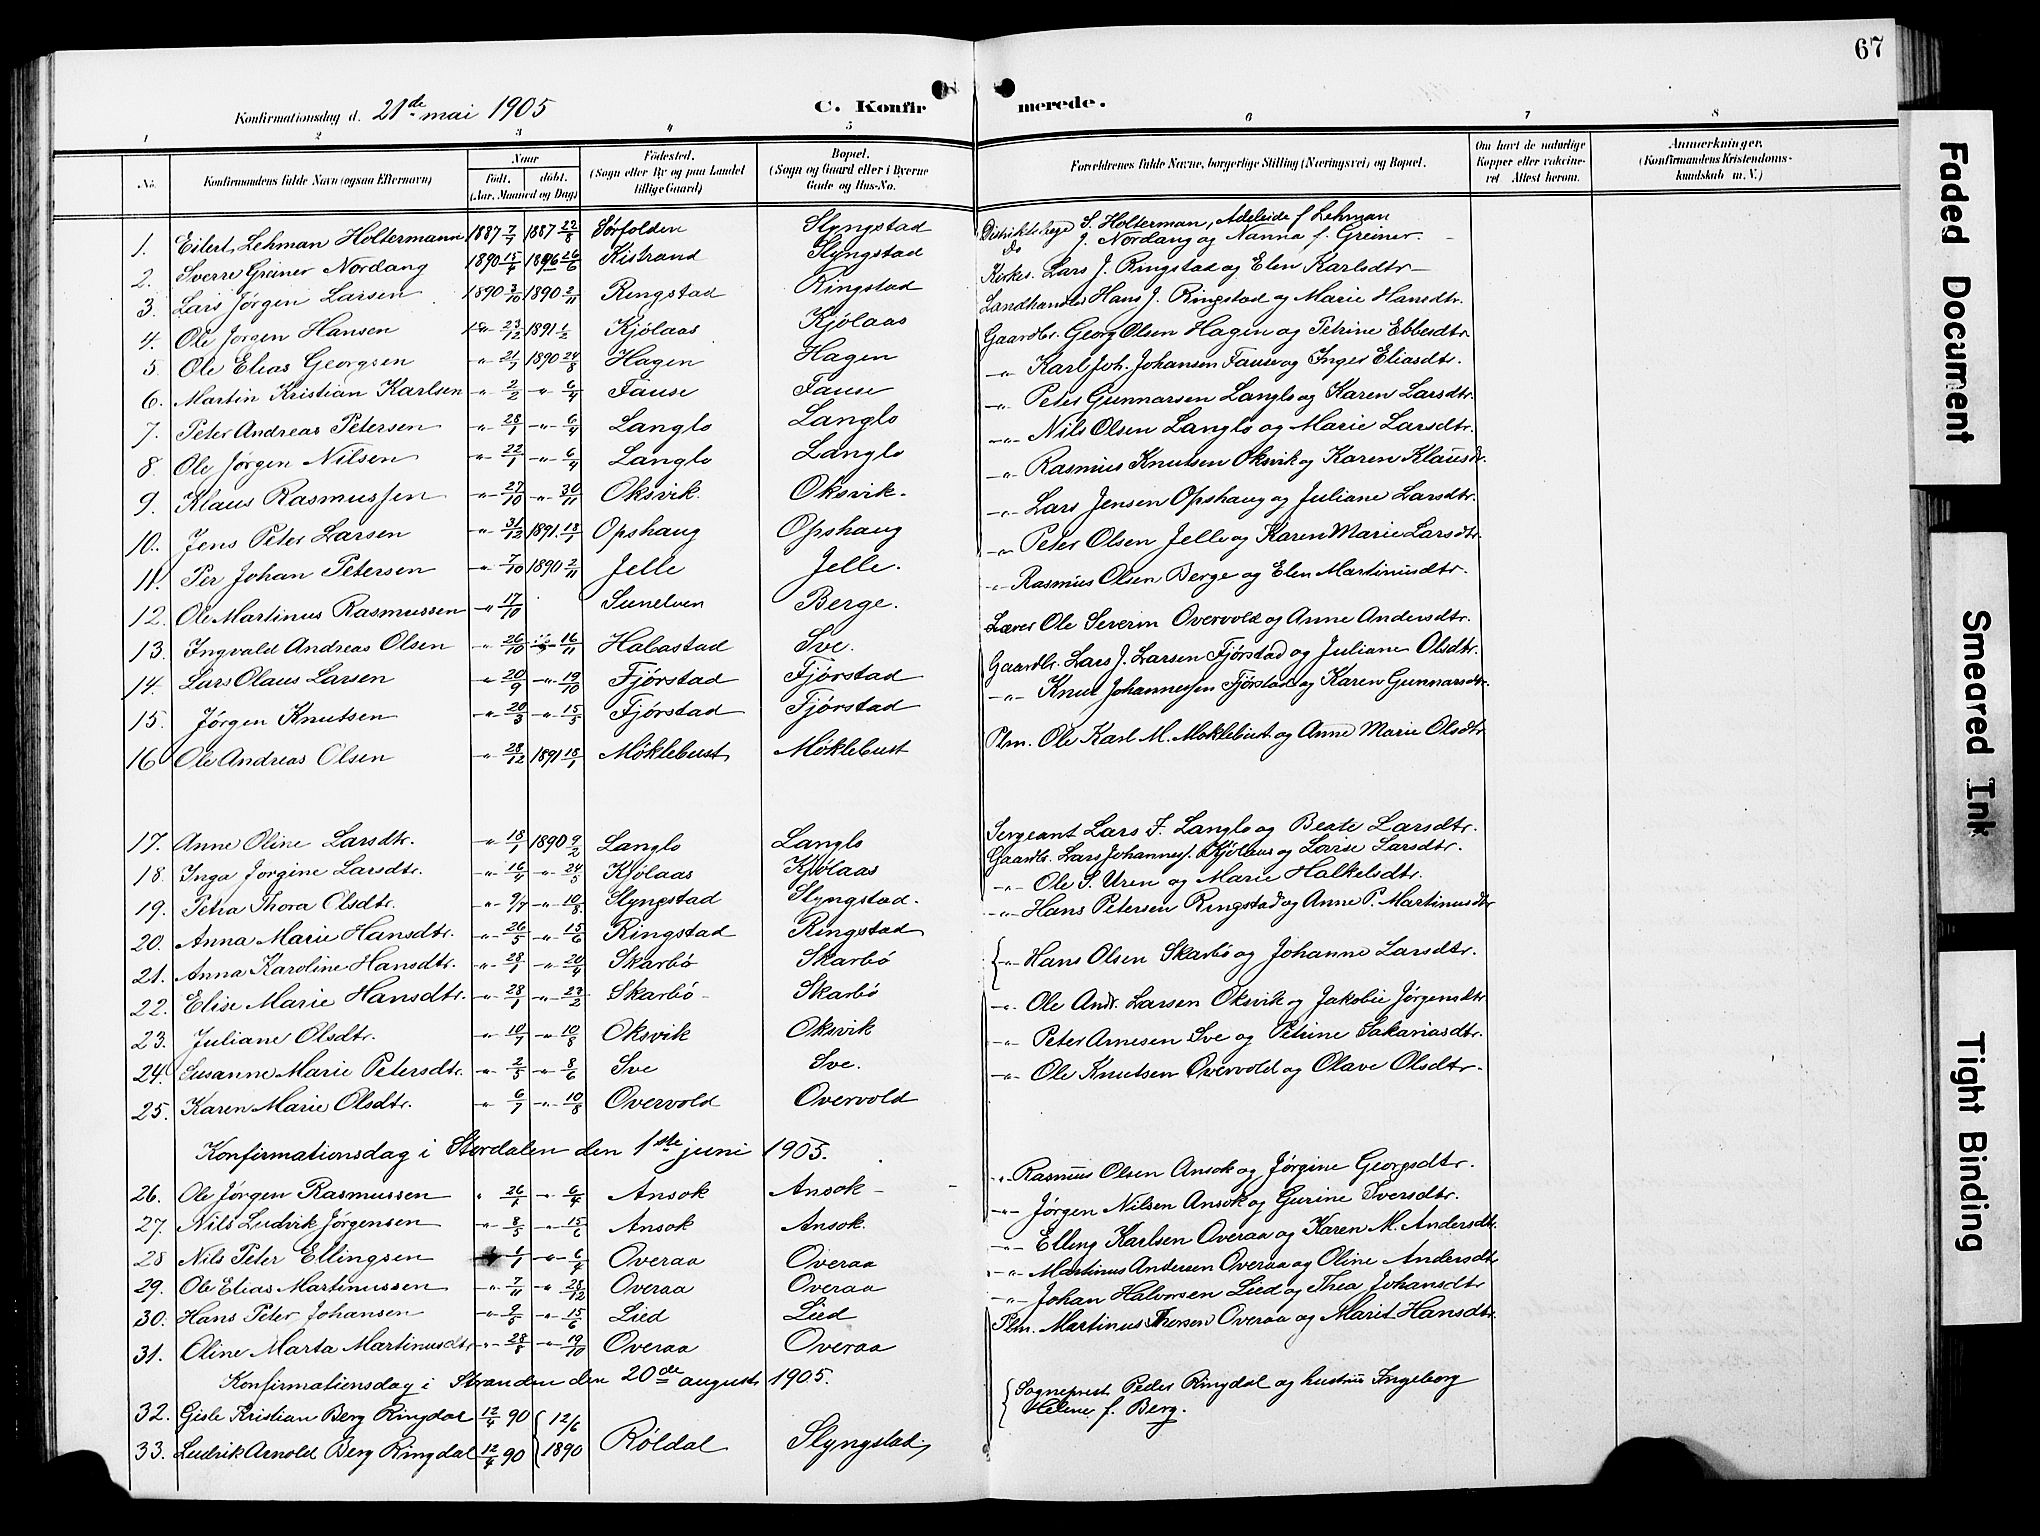 67
Konfirmationsdag d. 21de mai 1905 C. Konfirmerede.
1 2 3 4 5 6 7 8
No. Konfirmandens fulde Navn (ogsaa Efternavn) Naar Født. døbt. (Aar, Maaned og Dag) Fødested. (Sogn eller By og paa Landet tillige Gaard) Bopæl. (Sogn og Gaard eller i Byerne Gade og Hus-No. Forældrenes fulde Navne, borgerlige Stilling (Næringsvei) og Bopæl. Om havt de naturlige Kopper eller vakcineret Attest herom. Anmærkninger. (Konfirmandens Kristendomskundskab m. V.)
1. Eilert Lehman Holtermann 1887 7/7 1887 22/8 Sørfolden Slyngstad Distriktslæge S. Holterman, Adeleide f Lehman
2. Sverre Greiner Nordang 1890 15/4 26/6 Kistrand Slyngstad Do J. Nordang og Nanna f. Greiner.
3. Lars Jørgen Larsen 1890 3/10 1890 2/11 Ringstad Ringstad Kirkes. Lars J. Ringstad og Elen Karlsdtr
4. Ole Jørgen Hansen 23/12 1891 1/2 Kjølaas Kjølaas Landhandler Hans J. Ringstad og Marie Hansdtr.
5. Ole Elias Georgsen -"- 21/7 1890 24/8 Hagen Hagen Gaardbr. Georg Olsen Hagen og Petrine Ebbesdtr
6. Martin Kristian Karlsen -"- 2/2 -"- 6/4 Fause Fause -"- Karl Joh. Johansen Fause og Inger Eliasdtr.
7. Peter Andreas Petersen -"- 28/1 -"- 6/4 Langlo Langlo -"- Peter Gunnarsen Langlo og Karen Larsdtr.
8. Ole Jørgen Nilsen -"- 22/1 -"- 6/4 Langlo Langlo -"- Nils Olsen Langlo og Marie Larsdtr.
9. Klaus Rasmussen -"- 27/10 -"- 30/11 Oksvik. Oksvik. -"- Rasmus Knutsen Oksvik og Karen Klausdr.
10. Jens Peter Larsen -"- 31/12 1891. 18/1 Opshaug Opshaug -"- Lars Jensen Opshaug og Juliane Larsdtr.
11. Per Johan Petersen -"- 7/10 1890 2/11 Jelle Jelle. -"- Peter Olsen Jelle og Karen Marie Larsdtr.
12. Ole Martinus Rasmussen -"- 17/10 Sunelven Berge. -"- Rasmus Olsen Berge og Elen Martinusdtr.
13. Ingvald Andreas Olsen -"- 26/10 16/11 Habostad Sve. Lærer Ole Severin Overvold og Anne Andersdtr.
14. Lars Olaus Larsen -"- 20/9 -"- 19/10 Fjørstad Fjørstad Gaardbr. Lars J. Larsen Fjørstad og Juliane Olsdtr.
15. Jørgen Knutsen -"- 20/3 -"- 15/5 Fjørstad Fjørstad -"- Knut Johannessen Fjørstad og Karen Gunnarsdtr.
16 Ole Andreas Olsen -"- 28/12 1891 18/1 Møklebust Møklebust Plm. Ole Karl M. Møklebust og Anne Marie Olsdtr
17. Anne Oline Larsdtr. -"- 18/1 1890 9/2 Langlo Langlo Sergeant Lars F. Langlo og Beate Larsdtr.
18. Inga Jørgine Larsdtr. -"- 16/4 -"- 24/5 Kjølaas Kjølaas Gaardbr. Lars Johannes. Kjølaas og Lovise Larsdtr.
19. Petra Thora Olsdtr. -"- 9/7 -"- 10/8 Slyngstad Slyngstad. -"- Ole S. Uren og Marie Halkelsdtr.
20. Anna Marie Hansdtr. -"- 26/5 -"- 15/6 Ringstad Ringstad -"- Hans Petersen Ringstad og Anne P. Martinusdtr
21. Anna Karoline Hansdtr. -"- 28/1 -"- 20/4 Skarbö Skarbö { -"- Hans Olsen Skarbö og Johanne Larsdtr.
22. Elise Marie Hansdtr. -"- 28/1 -"- 23/2 Skarbö Skarbö
23. Juliane Olsdtr. -"- 10/7 -"- 10/8 Oksvik Oksvik -"- Ole Andr. Larsen Oksvik og Jakobie Jørgensdtr
24. Susanne Marie Petersdtr. -"- 2/5 -"- 8/6 Sve Sve. -"- Peter Arnesen Sve og Petrine Sakariasdtr.
25. Karen Marie Olsdtr. -"- 6/7 -"- 10/8 Overvold Overvold -"- Ole Knutsen Overvold og Olave Olsdtr.
Konfirmationsdag i Stordalen den 1ste juni 1905.
26. Ole Jørgen Rasmussen " 26/1 -"- 6/4 Ansok Ansok -"- Rasmus Olsen Ansok og Jørgine Georgsdtr.
27. Nils Ludvik Jørgensen -"- 8/5 -"- 15/6 Ansok Ansok. -"- Jørgen Nilsen Ansok og Gurine Iversdtr.
28 Nils Peter Ellingsen 6/1 -"- 6/4 Overaa Overaa -"- Elling Karlsen Overaa og Karen M. Andersdtr.
29. Ole Elias Martinussen -"- 7/11 -"- 28/12 Overaa Overaa -"- Martinus Andersen Overaa og Oline Andersdtr
30. Hans Peter Johansen -"- 9/5 -"- 15/6 Lied Lied -"- Johan Halvorsen Lied og Thea Johansdtr
31. Oline Marta Martinusdtr -"- 28/8 -"- 19/10 Overaa Overaa Plm. Martinus Thersen Overaa og Marit Hansdtr.
Konfirmationsdag i Stranden den 20de august 1905.
32. Gisle Kristian Berg Ringdal 12/4 90 { 12/6 1890 Röldal Slyngstad { Sogneprest Peder Ringdal og hustru Ingeborg Helene f. Berg.
33. Ludvik Arnold Berg Ringdal 12/4 90
Faded Document
Smeared Ink
Tight Binding